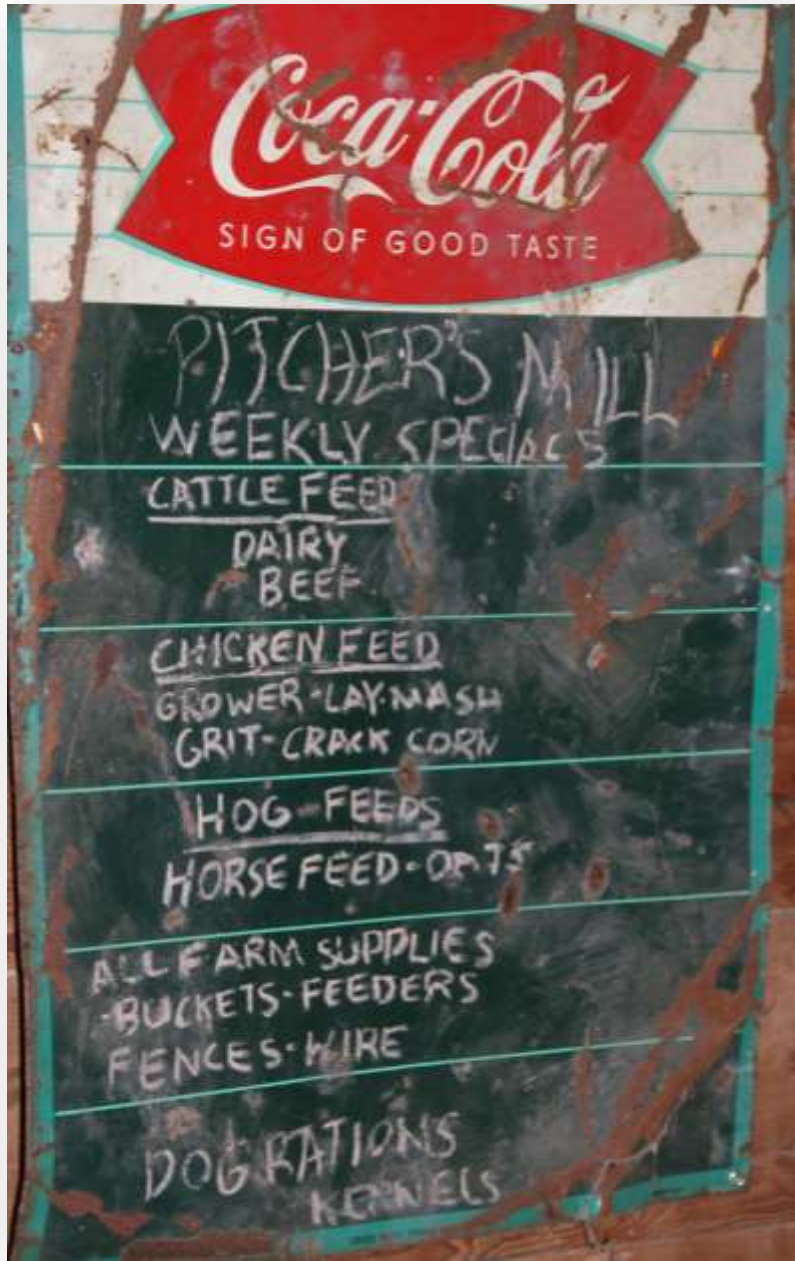 Coca-Cola
SIGN OF GOOD TASTE
PITCHER'S MILL
WEEKLY SPECIALS
CATTLE FEED
DAIRY
BEEF
CHICKEN FEED
GROWER-LAY-MASH
GRIT-CRACK CORN
HOG-FEEDS
HORSE FEED-OATS
ALL FARM SUPPLIES
-BUCKETS-FEEDERS
FENCES-WIRE
DOG RATIONS
KENNELS